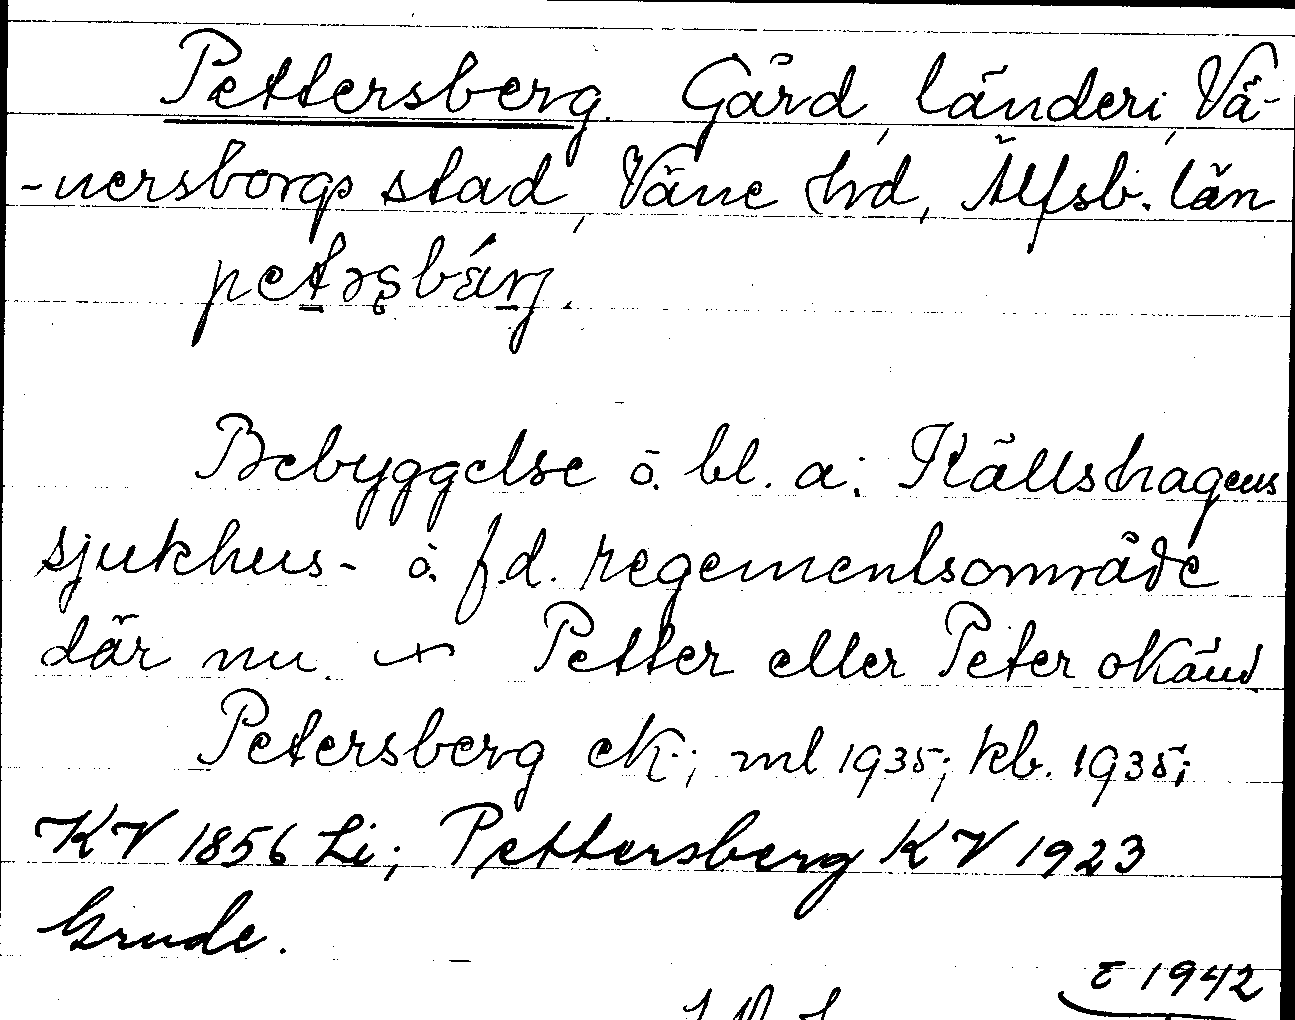 Pettersberg. Gård, länderi, Vä-
-nersborgs stad, Väne hd, Älfsb. län
petrs̨bárj.
Bebyggelse ö. bl. a. Källshagens
sjukhus- o. f.d. regementsområde
där nu. Petter eller Peter okänd
Petersberg ek.; ml 1935; kb. 1935;
KV 1856 Li; Pettersberg KV 1923
Grude.
1942